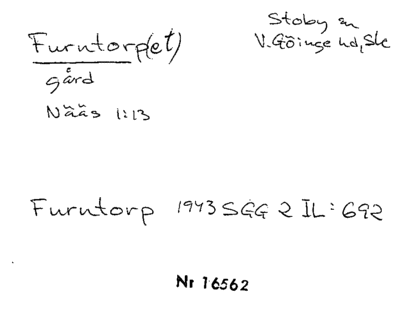 Furntorp(et)
Stoby sn
V. Göinge hd, Sk
gård
Nääs 1:13
Furntorp 1943 SGG 2 IL: 692
Nr 16562